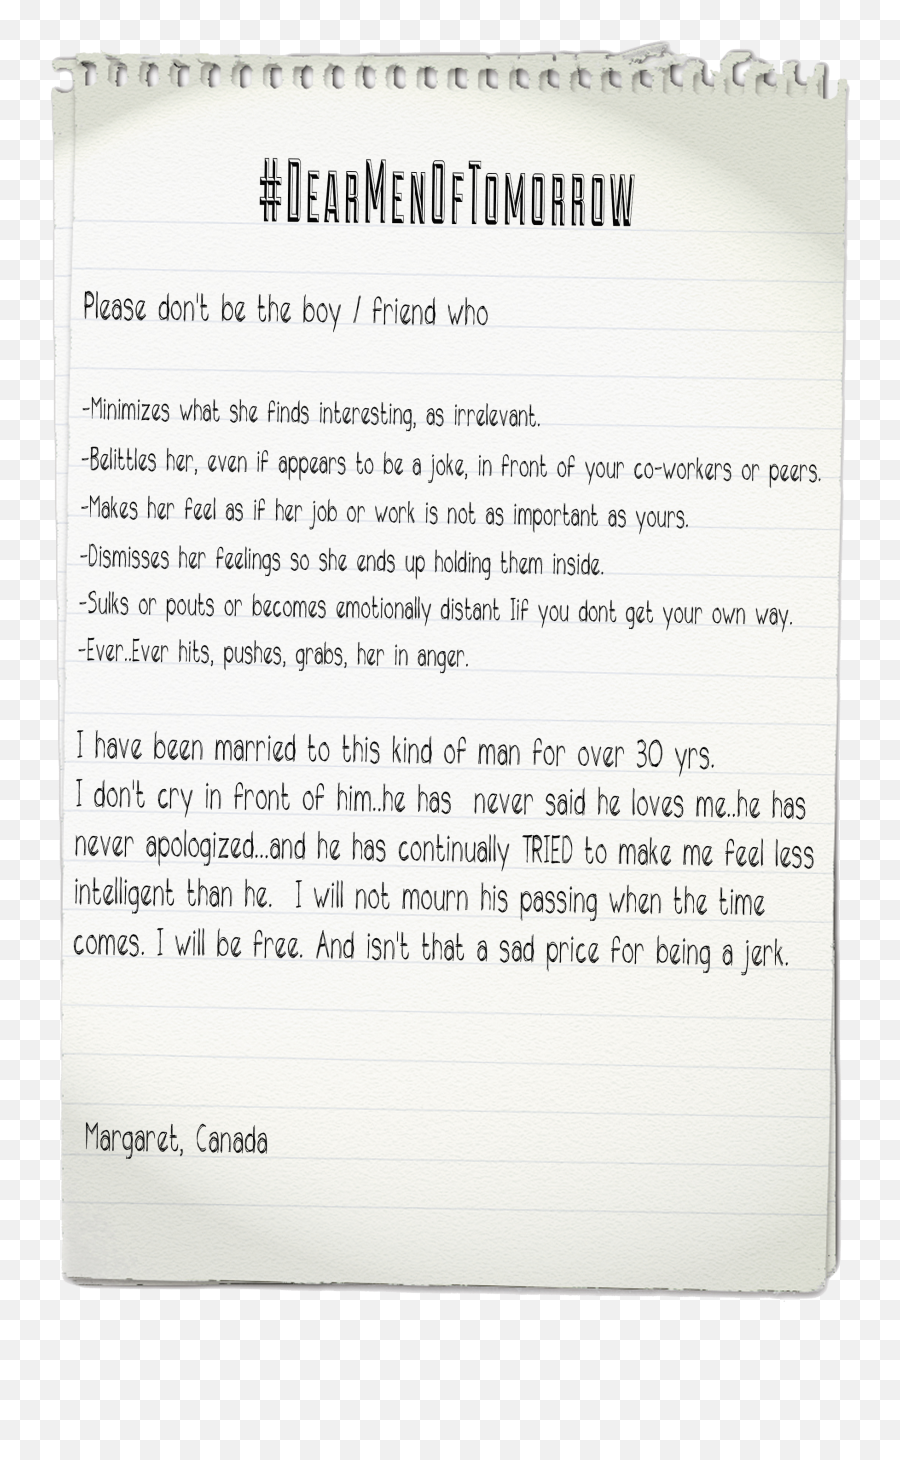 #DearMenOfTomorrow
Please don't be the boy / friend who
-Minimizes what she finds interesting, as irrelevant.
-Belittles her, even if appears to be a joke, in front of your co-workers or peers.
-Makes her feel as if her job or work is not as important as yours.
-Dismisses her feelings so she ends up holding them inside.
-Sulks or pouts or becomes emotionally distant Iif you dont get your own way.
-Ever..Ever hits, pushes, grabs, her in anger.
I have been married to this kind of man for over 30 yrs.
I don't cry in front of him..he has never said he loves me..he has
never apologized...and he has continually TRIED to make me feel less
intelligent than he. I will not mourn his passing when the time
comes. I will be free. And isn't that a sad price for being a jerk.
Margaret, Canada